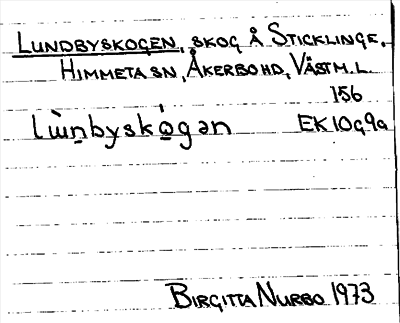 LUNDBYSKOGEN, SKOG Å STICKLINGE,
HIMMETA SN, ÅKERBO HD, VÄSTM. L.
156
lùn̲byskó̲gən EK 10g9a
BIRGITTA NURBO 1973